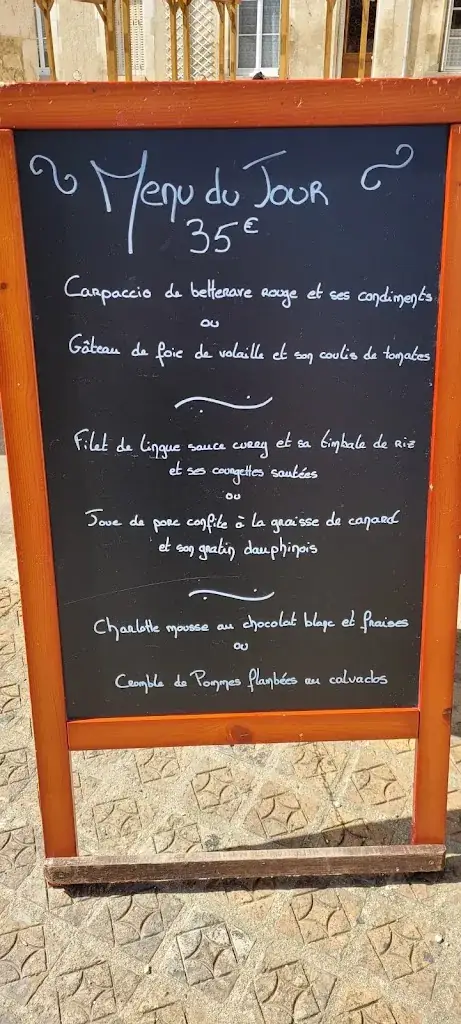 Menu du Jour
35€
Carpaccio de betterave rouge et ses condiments
ou
Gâteau de foie de volaille et son coulis de tomates
Filet de lingue sauce curry et sa timbale de riz
et ses courgettes sautées
ou
Joue de porc confite à la graisse de canard
et son gratin dauphinois
Charlotte mousse au chocolat blanc et fraises
ou
Cromble de Pommes flambées au calvados